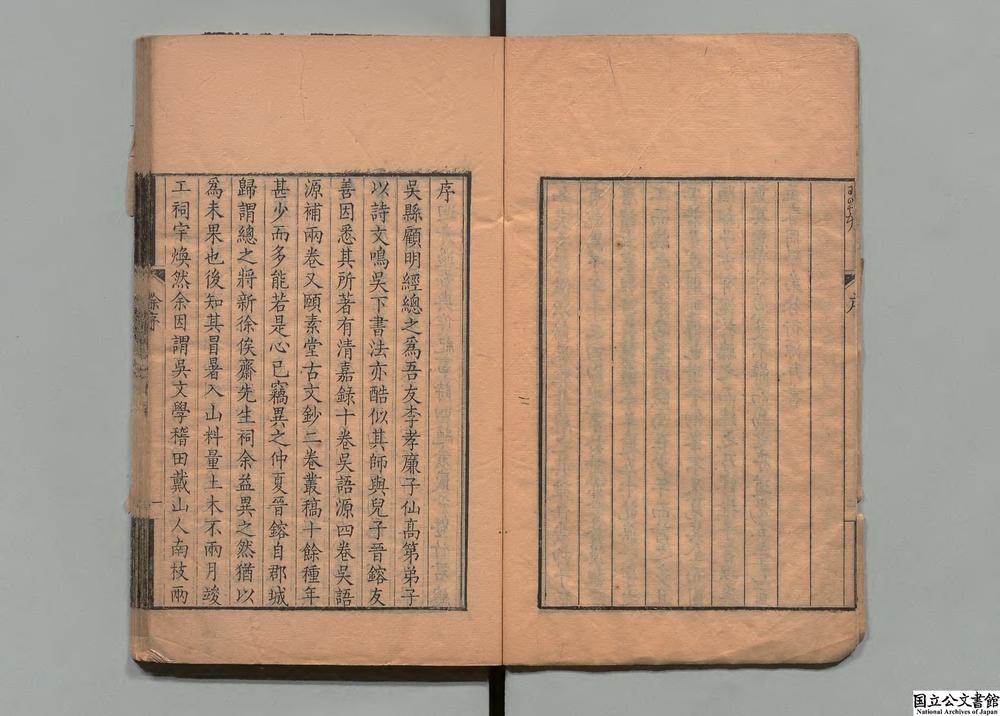 序
吳縣顧明經總之爲吾友李孝廉子仙高第弟子
以詩文鳴吳下書法亦酷似其師與兒子晉鎔友
善因悉其所著有清嘉錄十卷吳語源四卷吳語
源補兩卷又頤素堂古文鈔二卷叢稿十餘種年
甚少而多能若是心已竊異之仲夏晉鎔自郡城
歸謂總之將新徐俟齋先生祠余益異之然猶以
爲未果也後知其冒暑入山料量土木不兩月竣
工祠宇煥然余因謂吳文學稽田戴山人南枝兩
序
一
国立公文書館
National Archives of Japan